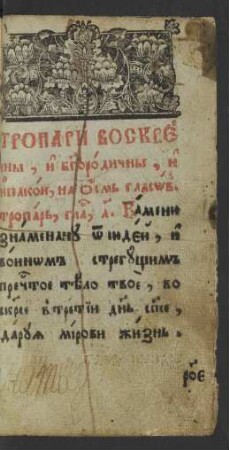 ТРОПАРИ ВОСКРЕ
ны, и҆ бг҃оро́дичны, и҆
и҆пакои̑, на о҆́смь гла́сѡв.
тропа́рь, гла́, а҃. Ка́мени
зна́менану ѿ і҆ꙋде́й, и҆
во́инѡмъ стрегꙋ́щимъ
пречⷭ҇тое тѣ́ло твоѐ, во
скр҃се в̾ тре́тїи дн҃ь сп҃се,
да́рꙋѧ мі́рови жи́знь.